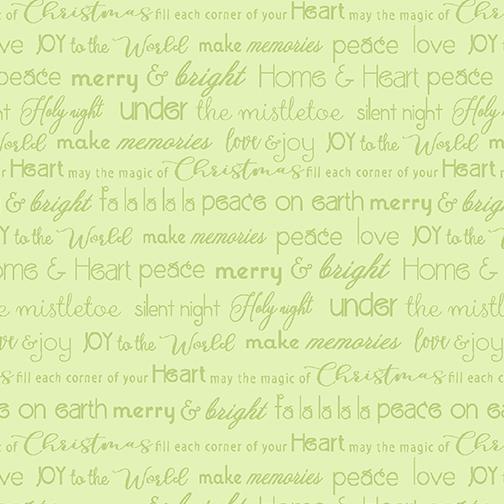 of Christmas fill each corner of your Heart may the magic of Chris
ve JOY to the World make memories peace love JOY
peace merry & bright Home & Heart peace
ht Holy night under the mistletoe silent night Holy
World make memories love & joy JOY to the World m
r Heart may the magic of Christmas fill each corner of your Heart m
& bright fa la la la la peace on earth merry & brig
Y to the World make memories peace love JOY to the
me & Heart peace merry & bright Home &
e mistletoe silent night Holy night under the mist
ve & joy JOY to the World make memories love & joy
s fill each corner of your Heart may the magic of Christmas fill each c
e on earth merry & bright fa la la la la peace on ea
of Christmas fill each corner of your Heart may the magic of Chris
ve JOY to the World make memories peace love JOY
peace merry & bright Home & Heart peace